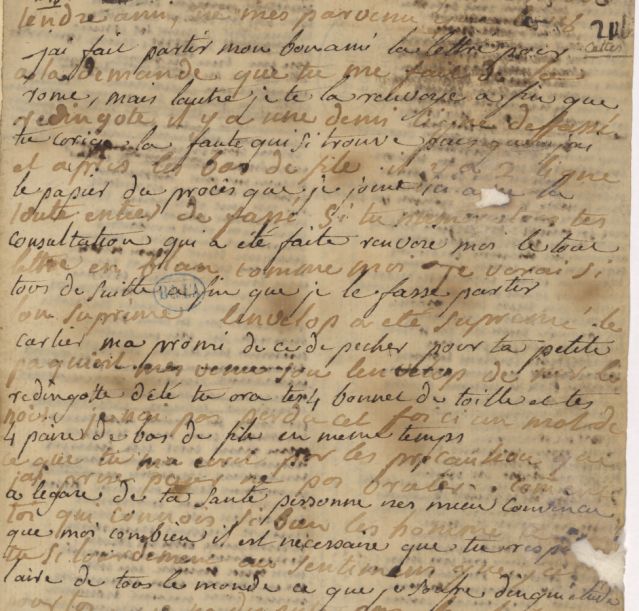 tendre ami, ne mes parvenu que le 18
211
Cattes
jai fait partir mon bon ami la lettre pour
a la demande que tu me fait de la
rome, mais lautre je te la renvoise a fin que
redingote il y a une demi ligne de fassé
tu corige la faute qui si trouve puis que
et apres les bas de file il y a 2 ligne
le papier du proces que je joint ici avec la
toute entier de fassé Si tu tes
consultation qui a eté faite renvoie mos le tout
lettre en blan comme moi je verai si
tous de suitte a fin que je le fasse partir
on suprime lenvelop a eté suprimé le
cartier ma promi de ce de pecher pour ta petite
paquiet mes venu lenvelop de
redingotte d'été tu ora tes 4 bonnet de toille et tes
noire je nai pas perdu cet foi ci un mot de
4 paire de bas de file en meme temps
ce que tu ma ecrit par les precaution que
jai pris pour ne pas
a legare de ta santé personne nes mieu convincu
toi qui connois si bien les homme
que moi combien il est necessaire que tu
tu si lourdemen au sentimens que
laire de tous le monde ce que je soufre dinquietude